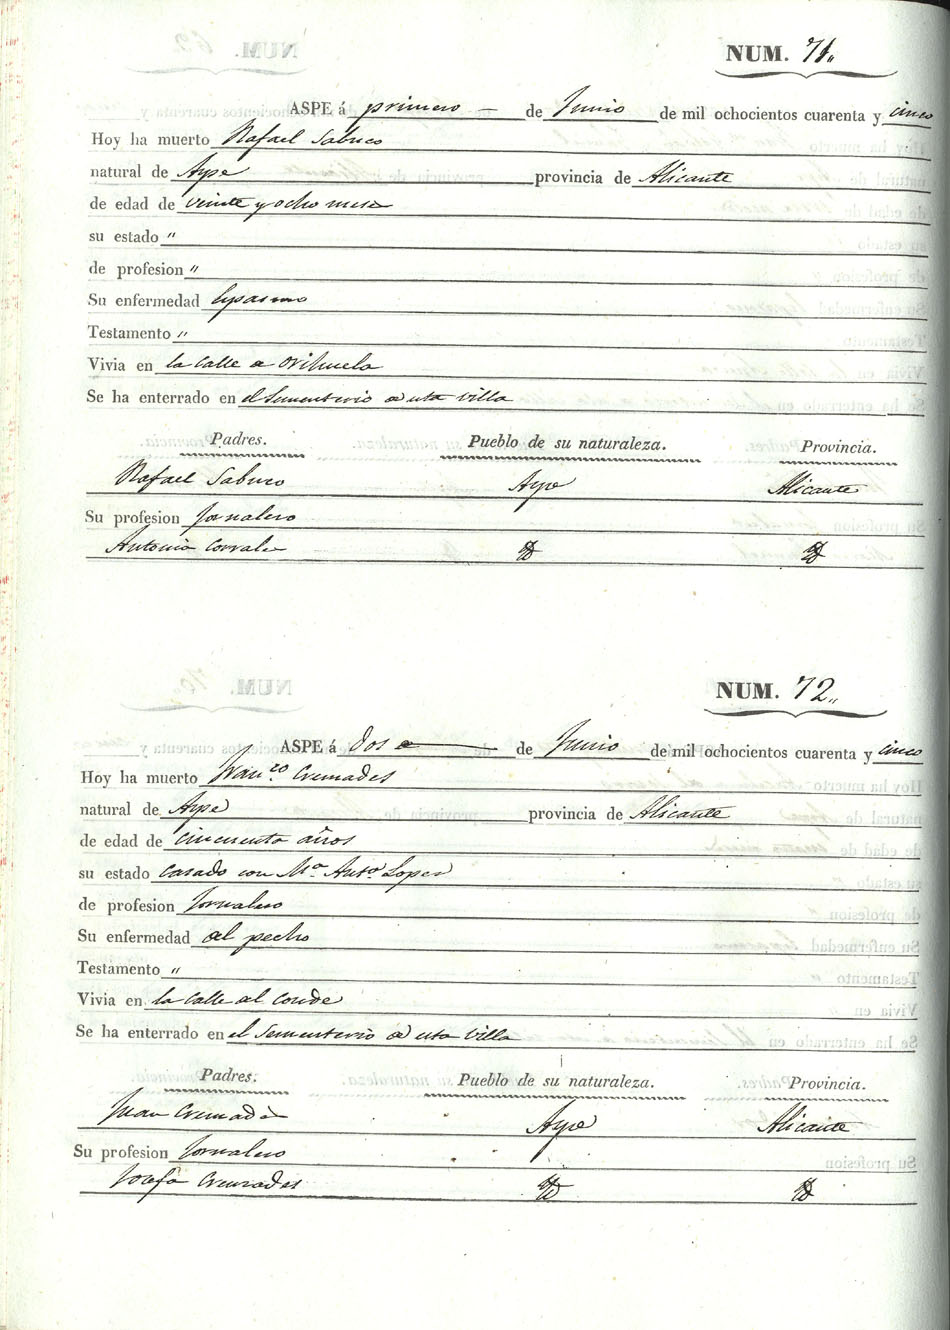 NUM. 71„
ASPE á primero — de Junio de mil ochocientos cuarenta y cinco
Hoy ha muerto Rafael Sabuco
natural de Aspe provincia de Alicante
de edad de veinte y ocho meses
su estado „
de profesion „
Su enfermedad Espasmo
Testamento „
Vivia en la Calle de Orihuela
Se ha enterrado en el Sementerio de esta villa
Padres. Pueblo de su naturaleza. Provincia.
Rafael Sabuco Aspe Alicante
Su profesion Jornalero
Antonia Corrales Yd Yd
NUM. 72„
ASPE á dos de Junio de mil ochocientos cuarenta y cinco
Hoy ha muerto Franco. Cremades
natural de Aspe provincia de Alicante
de edad de cincuenta años
su estado casado con Ma. Anta. Lopes
de profesion Jornalero
Su enfermedad del pecho
Testamento „
Vivia en la Calle del Conde
Se ha enterrado en el Sementerio de esta villa
Padres. Pueblo de su naturaleza. Provincia.
Juan Cremades Aspe Alicante
Su profesion Jornalero
Josefa Cremades Yd Yd